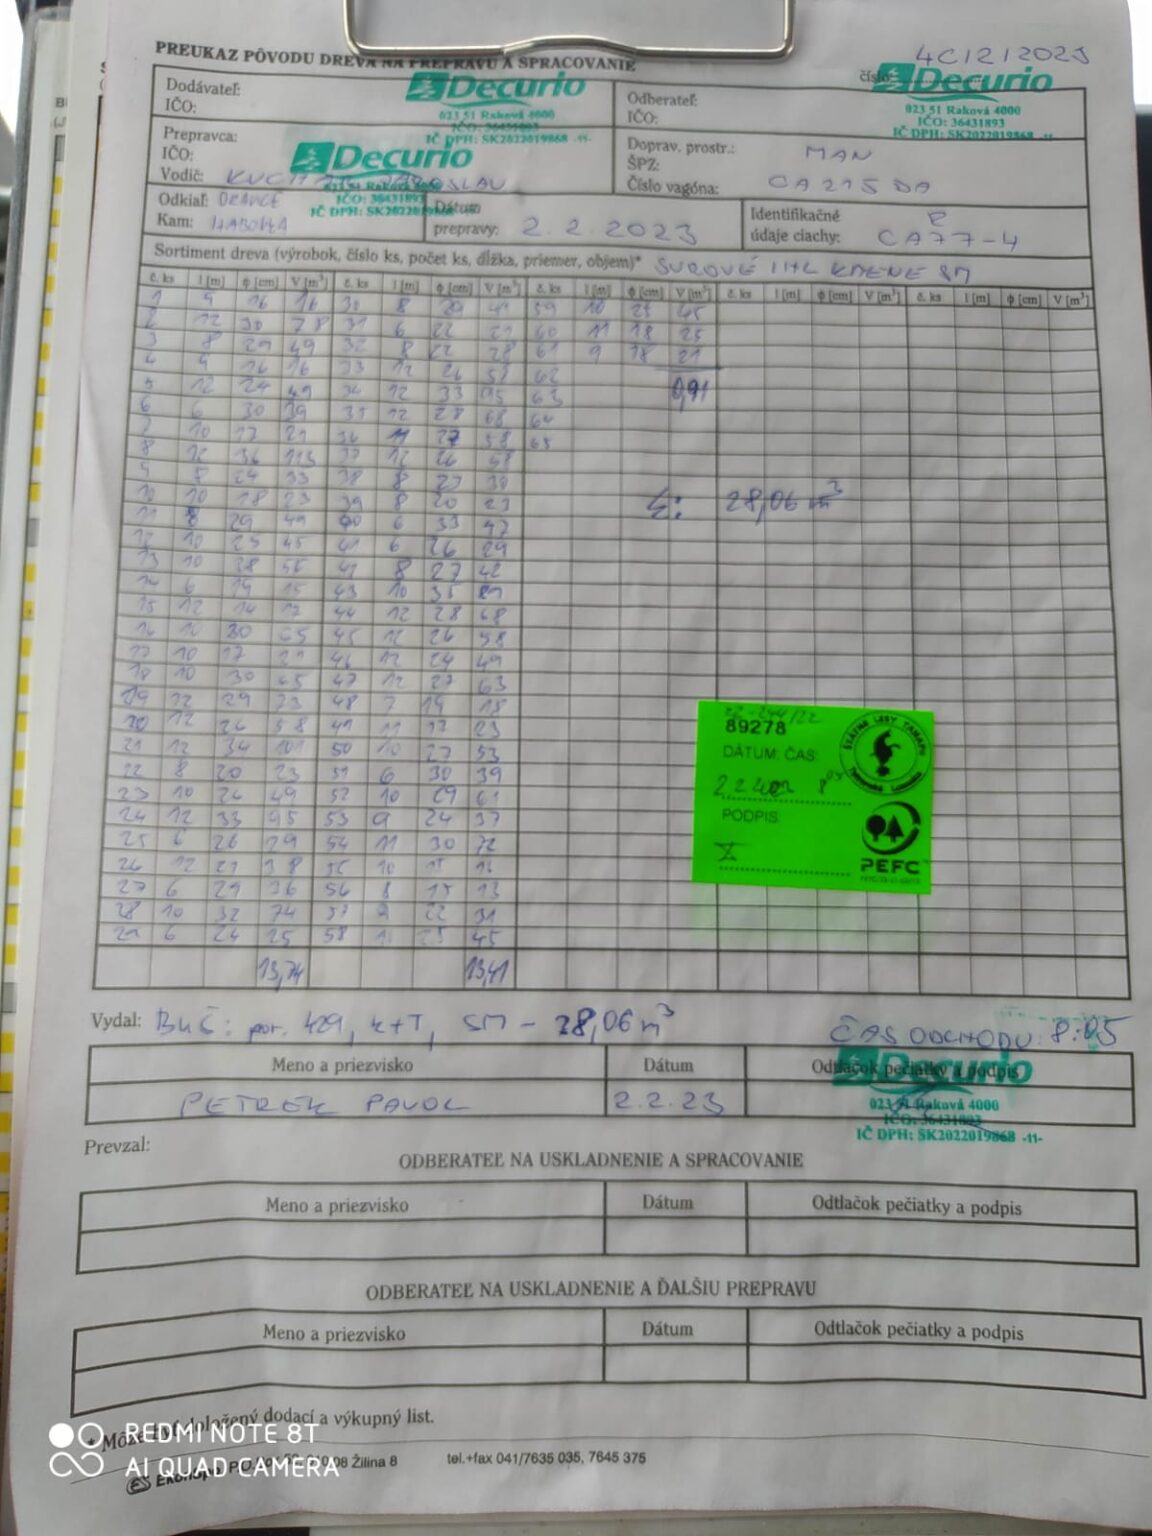 PREUKAZ PÔVODU DREVA NA PREPRAVU A SPRACOVANIE
4C/2/2023
číslo
Decurio
023 51 Raková 4000
IČO: 36431893
IČ DPH: SK2022019868 -11-
Dodávateľ:
IČO:
Decurio
023 51 Raková 4000
IČO: 36431893
IČ DPH: SK2022019868 -11-
Odberateľ:
IČO:
Prepravca:
IČO:
Vodič:
Decurio
023 51 Raková 4000
IČO: 36431893
IČ DPH: SK2022019868
Doprav. prostr.: MAN
ŠPZ:
Číslo vagóna: CA215DA
Odkiaľ: ORAVICE
Kam: HABOVKA
Dátum
prepravy: 2.2.2023
Identifikačné
údaje ciachy: CA77-4
Sortiment dreva (výrobok, číslo ks, počet ks, dĺžka, priemer, objem)* SUROVÉ IHL KMENE SM
č. ks l [m] ϕ [cm] V [m³] č. ks l [m] ϕ [cm] V [m³] č. ks l [m] ϕ [cm] V [m³] č. ks l [m] ϕ [cm] V [m³] č. ks l [m] ϕ [cm] V [m³]
1 9 16 16 30 8 29 49 59 10 25 45
2 12 30 78 31 6 22 21 60 11 18 25
3 8 29 49 32 8 22 28 61 9 18 21
4 9 16 16 33 12 26 58 62
5 12 24 49 34 12 33 95 63 0,91
6 6 30 39 35 12 28 68 64
7 10 17 21 36 11 27 58 65
8 12 36 113 37 12 26 58
9 8 24 33 38 8 23 30
10 10 18 23 39 8 20 23 Σ: 28,06 m³
11 8 29 49 40 6 33 47
12 10 25 45 41 6 26 29
13 10 28 56 42 8 27 42
14 6 19 15 43 10 35 87
15 12 14 17 44 12 28 68
16 10 30 65 45 12 26 58
17 10 17 21 46 12 24 49
18 10 30 65 47 12 27 63
19 12 29 73 48 7 19 18
20 12 26 58 49 11 17 23
21 12 34 101 50 10 27 53
22 8 20 23 51 6 30 39
23 10 26 49 52 10 29 61
24 12 33 95 53 9 24 37
25 6 26 29 54 11 30 72
26 12 21 38 55 10 15 16
27 6 29 36 56 8 15 13
28 10 32 74 57 9 22 31
29 6 24 25 58 10 25 45
13,74 13,41
89278
DÁTUM, ČAS:
8⁰⁵
PODPIS:
ŠTÁTNE LESY TANAPu
Tatranská Lomnica
PEFC
Vydal: BUČ: por. 429, k+T, SM - 28,06 m³
ČAS ODCHODU: 8:05
Meno a priezvisko Dátum Odtlačok pečiatky a podpis
PETREK PAVOL 2.2.23
Decurio
023 51 Raková 4000
IČO: 36431893
IČ DPH: SK2022019868 -11-
Prevzal:
ODBERATEĽ NA USKLADNENIE A SPRACOVANIE
Meno a priezvisko Dátum Odtlačok pečiatky a podpis
ODBERATEĽ NA USKLADNENIE A ĎALŠIU PREPRAVU
Meno a priezvisko Dátum Odtlačok pečiatky a podpis
* Môže byť doložený dodací a výkupný list.
REDMI NOTE 8T
AI QUAD CAMERA
08 Žilina 8 tel.+fax 041/7635 035, 7645 375